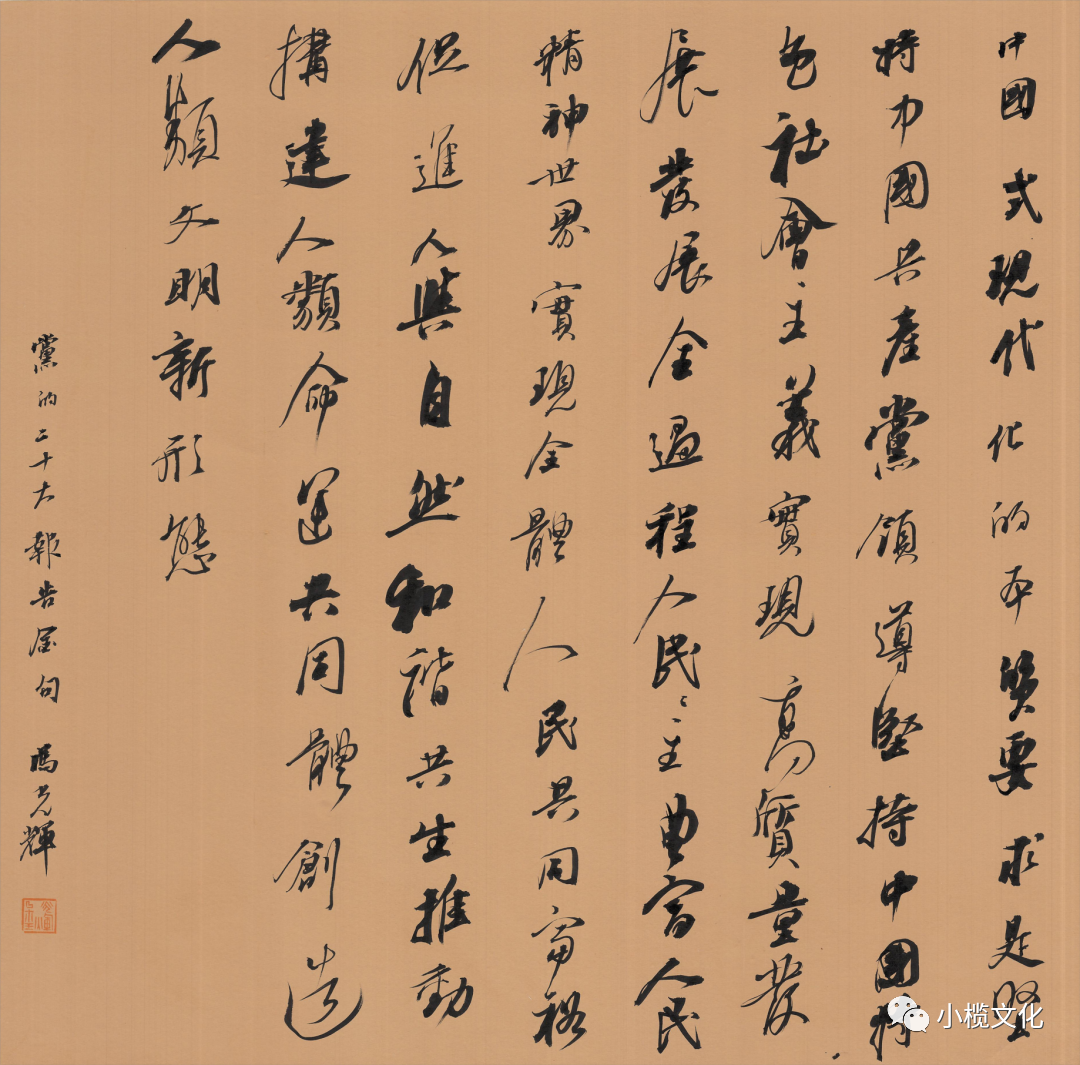 中國式現代化的本質要求是堅
持中國共產黨領導堅持中國特
色社會主義實現高質量發
展發展全過程人民々主豐富人民
精神世界實現全體人民共同富裕
促進人與自然和諧共生推動
構建人類命運共同體創造
人類文明新形態
黨的二十大報告金句 馮光輝
小榄文化